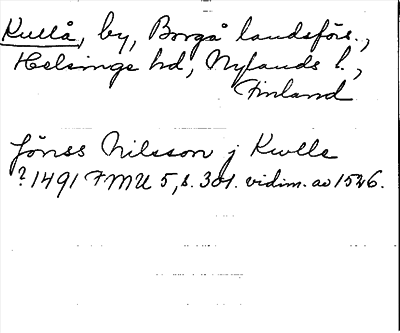 Kullå, by, Borgå landsförs.,
Helsinge hd, Nylands l.,
Finland
Jönss Nilsson j Kwlle
? 1491 FMU 5, s. 301. vidim. av 1526.